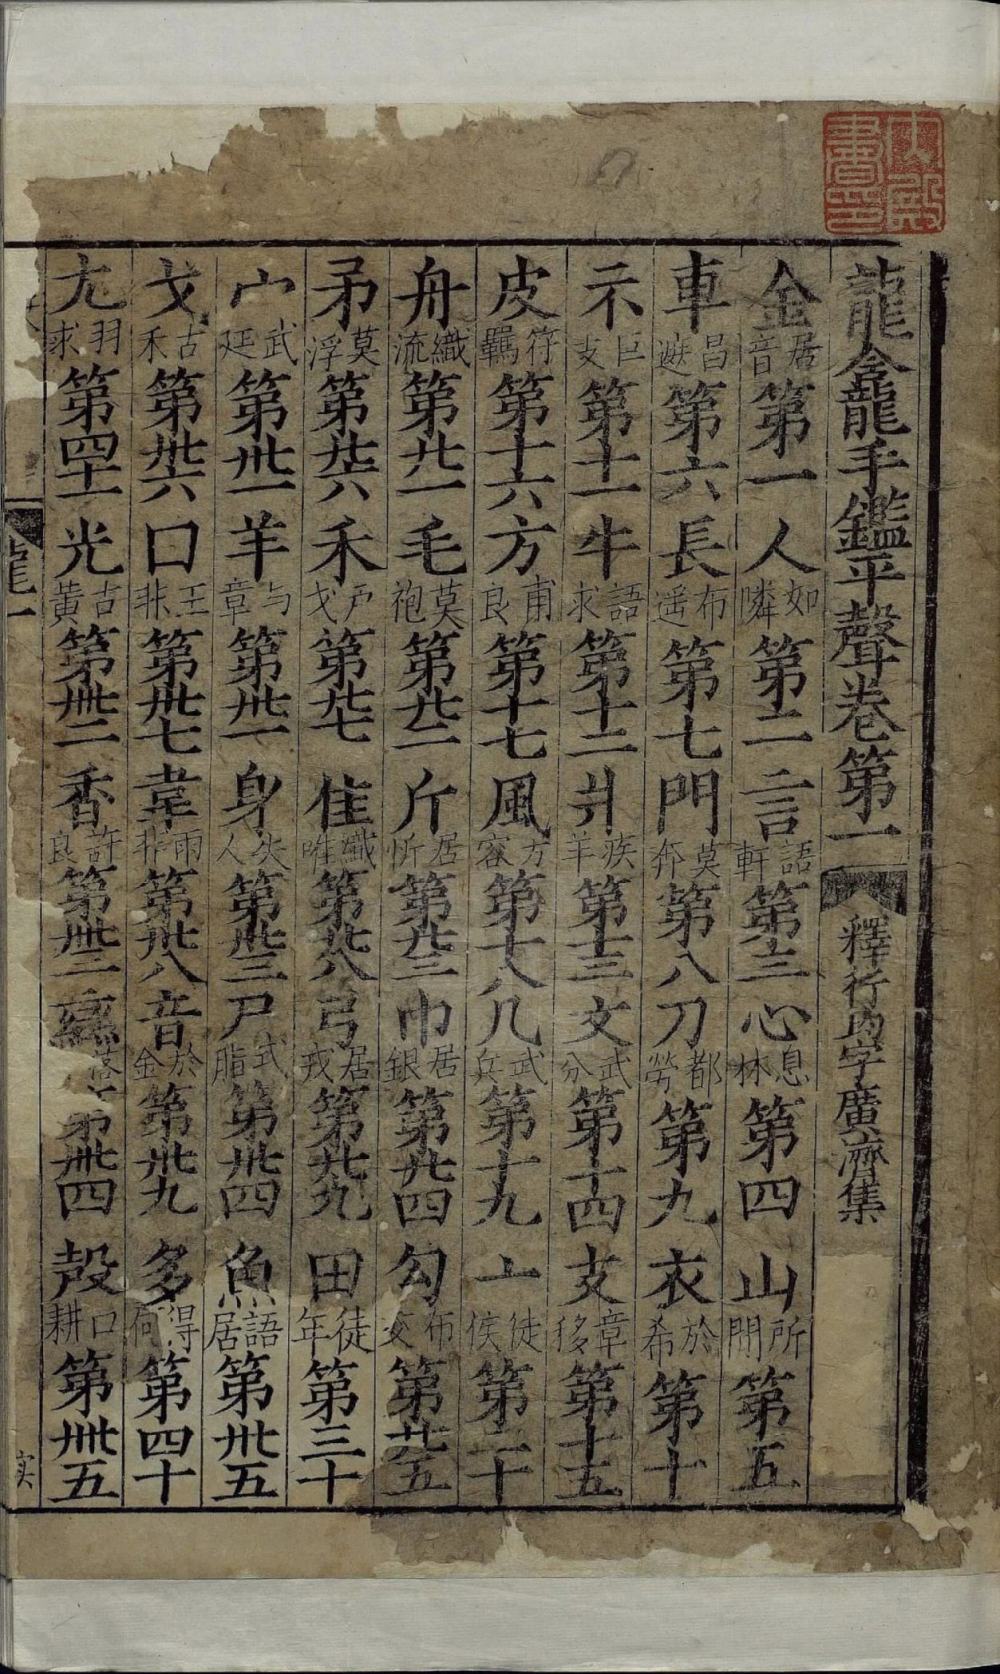 龍龕手鑑平聲卷第一 釋行均字廣濟集
金居音第一人如隣第二言語軒第三心息林第四山所間第五
車昌遮第六長布遥第七門莫奔第八刀都勞第九衣於希第十
示巨支第十一牛語求第十二爿疾羊第十三文武分第十四支章移第十五
皮符羈第十六方甫良第十七風方容第十八几武兵第十九亠徒侯第二十
舟織流第廿一毛莫袍第廿二斤居忻第廿三巾居銀第廿四勾布交第廿五
矛莫浮第廿六禾戶戈第廿七隹織唯第廿八弓居戎第廿九田徒年第三十
宀武延第卅一羊与章第卅一身失人第卅三尸式脂第卅四魚語居第卅五
戈古禾第卅六囗王非第卅七韋雨非第卅八音於金第卅九多得何第四十
尢羽求第四十一光古黃第卌二香許良第卌三 落 第卌四殸口耕第卌五
龍一